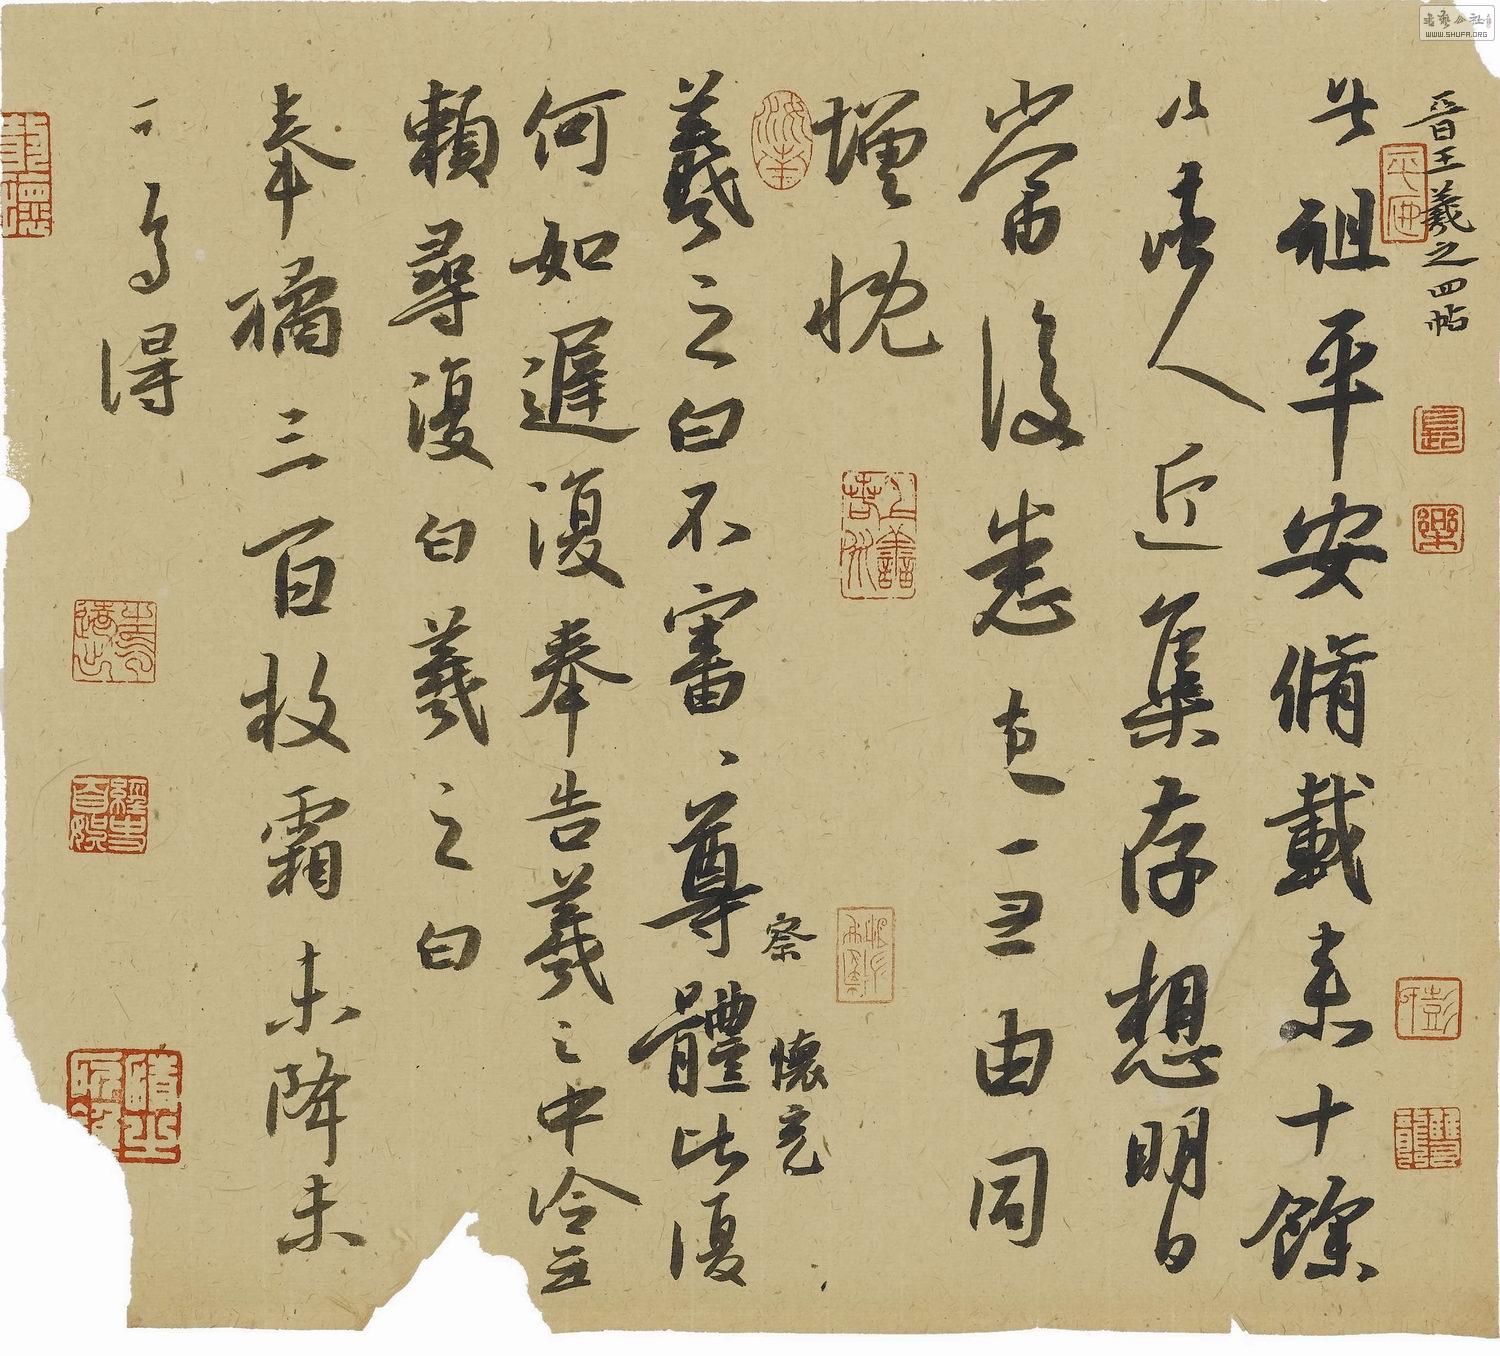 書藝公社
WWW.SHUFA.ORG
晉王羲之四帖
此粗平安脩載來十餘
日諸人近集存想明日
當復悉來無由同
增慨
察 懷充
羲之白不審、尊體比復
何如遲復奉告羲之中冷無
賴尋復白羲之白
奉橘三百枚霜未降未
可多得
長
樂
雙龍